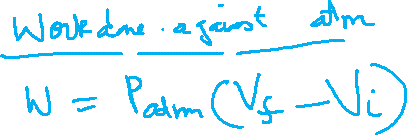 Work done against atm
W = Patm (Vf - Vi)